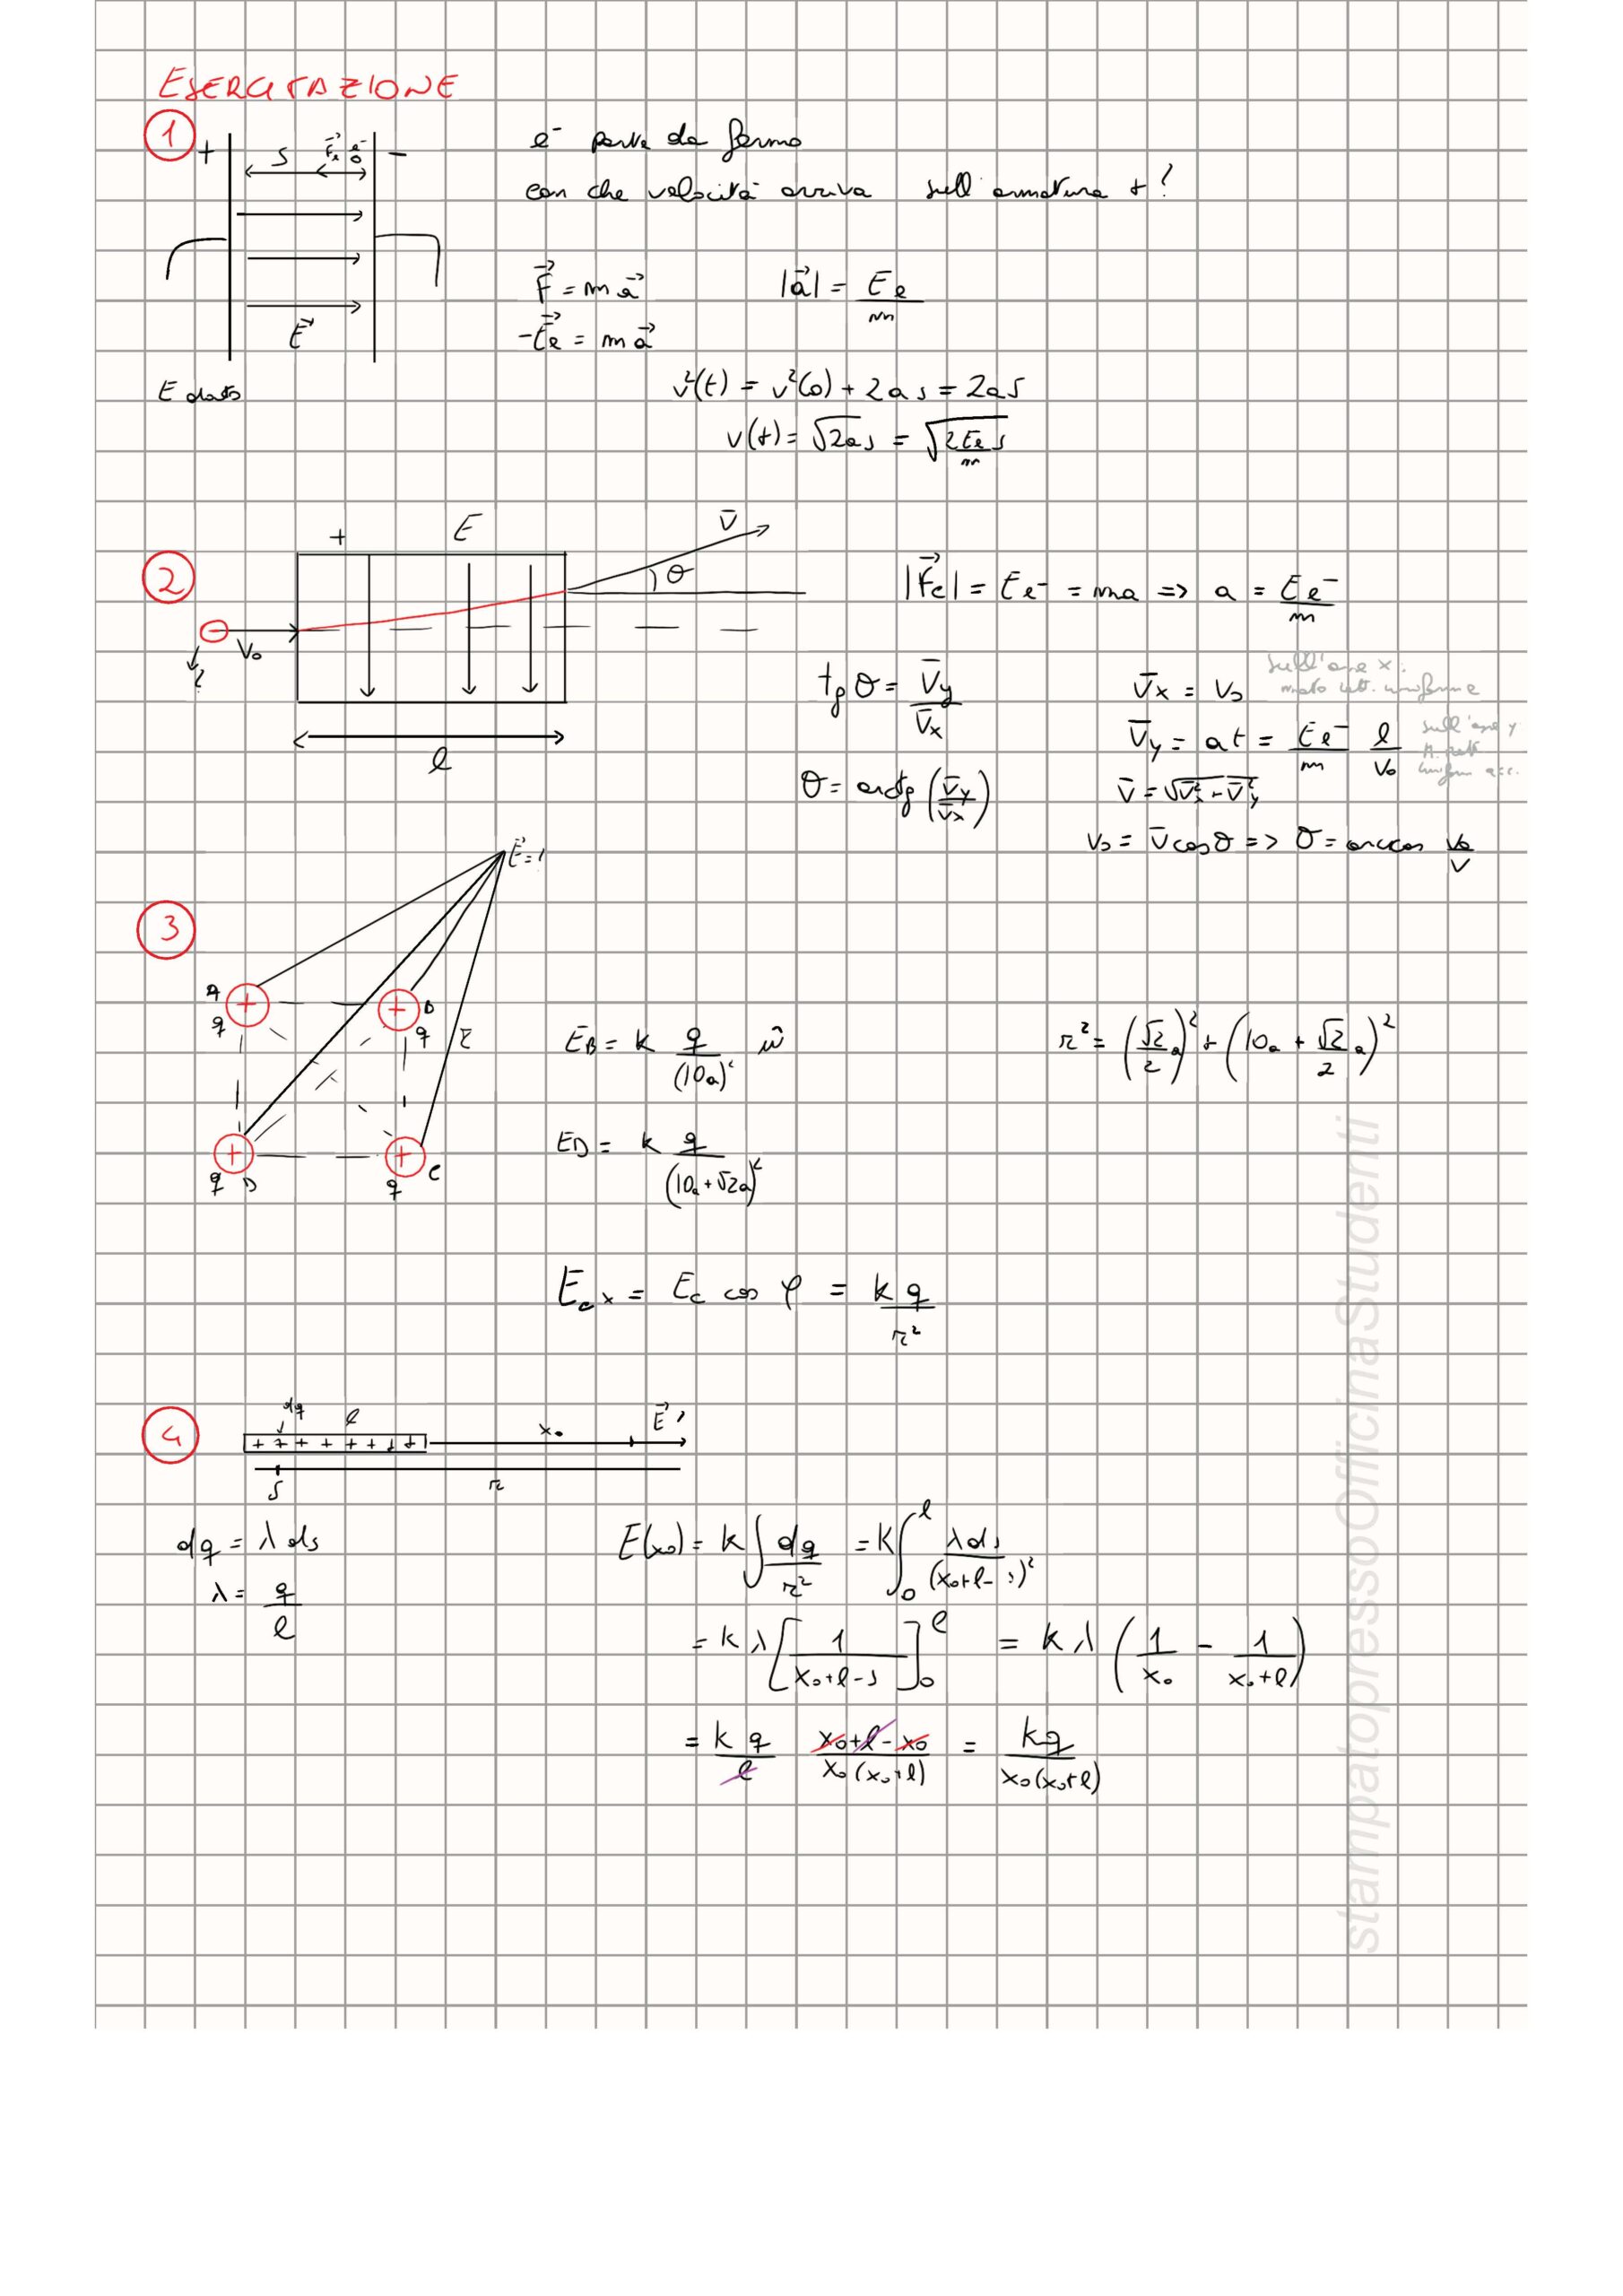 ESERCITAZIONE
1
+ S F⃗e e⁻ −
e⁻ parte da fermo
con che velocità arriva sull'armatura + ?
F⃗ = m a⃗
|a⃗| = Ee/m
E⃗
-E⃗e = m a⃗
E dato
v²(t) = v²(0) + 2as = 2as
v(t) = √2as = √(2Ee s/m)
2
+ E v̄
θ
V₀
l
|F⃗e| = Ee⁻ = ma => a = Ee⁻/m
tg θ = v̄y/v̄x
v̄x = v₀
sull'asse x:
moto rett. uniforme
v̄y = at = Ee⁻/m l/v₀
sull'asse y
m. rett.
unifor. acc.
θ = arctg (v̄y/v̄x)
v̄ = √v̄x² + v̄y²
v₀ = v̄ cos θ => θ = arccos v₀/v
3
E⃗ = ?
A q
+
+
B q
r
+
q D
+
q C
EB = k q/(10a)²
r² = (√2/2 a)² + (10a + √2/2 a)²
ED = k q/(10a+√2a)²
Ecx = Ec cos φ = kq/r²
4
dq l x₀ E⃗?
+ + + + + + + +
s r
dq = λ ds
λ = q/l
E(x₀) = k∫dq/r² = k∫₀ˡ λds/(x₀+l-s)²
= kλ[1/(x₀+l-s)]₀ˡ = kλ(1/x₀ - 1/(x₀+l))
= kq/l (x₀+l-x₀)/(x₀(x₀+l)) = kq/(x₀(x₀+l))
stampatopressoOfficinaStudenti